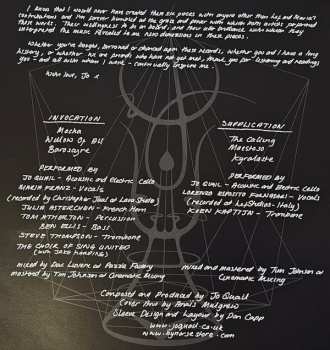 I know that I would never have created these six pieces with anyone other than Lez and
contributors and I'm forever humbled at the grace and power with which each artist performed
their work. Their willingness to be on board, and their sheer brilliance with which they
interpreted the music revealed to me new dimensions in these pieces.
Whether you've bought, borrowed or chanced upon these records, whether you and I have a long
history, or whether we are friends who have not yet met, thank you for listening and reading
you - and all with whom I work - continually inspire me.
With love, Jo x
INVOCATION
Mocha
Willow Of All
Baroscyre
PERFORMED BY
JO QUAIL - Acoustic and Electric Cello
MARIA FRANZ - Vocals
(recorded by Christopher Juul at Lava Studio)
JULIA - French Horn
TOM ATHERTON - Percussion
BEN ELLIS - Bass
STEVE THOMPSON - Trombone
THE CHOIR OF SING UNITED
mixed by Dan Lucas at Puzzle Factory
mastered by Tim Johnson at Cinematic Mixing
SUPPLICATION
The Calling
Kyrolaste
PERFORMED BY
JO QUAIL - Acoustic and Electric Cello
LORENZO ESPOSITO FORNASARI - Vocals
(recorded at Studios - Italy)
KOEN KAPTIJN - Trombone
mixed and mastered by Tim Johnson at
Cinematic Mixing
Composed and Produced by Jo Quail
Cover Art by Anaïs Mulgrew
Sleeve Design and Layout by Dan Capp
www.joquail.co.uk
www.bynorsestore.com